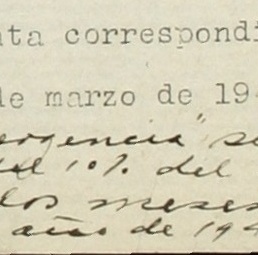 nta correspondi
de marzo de 194
ergencia" se
del 10% del
los meses
año de 194